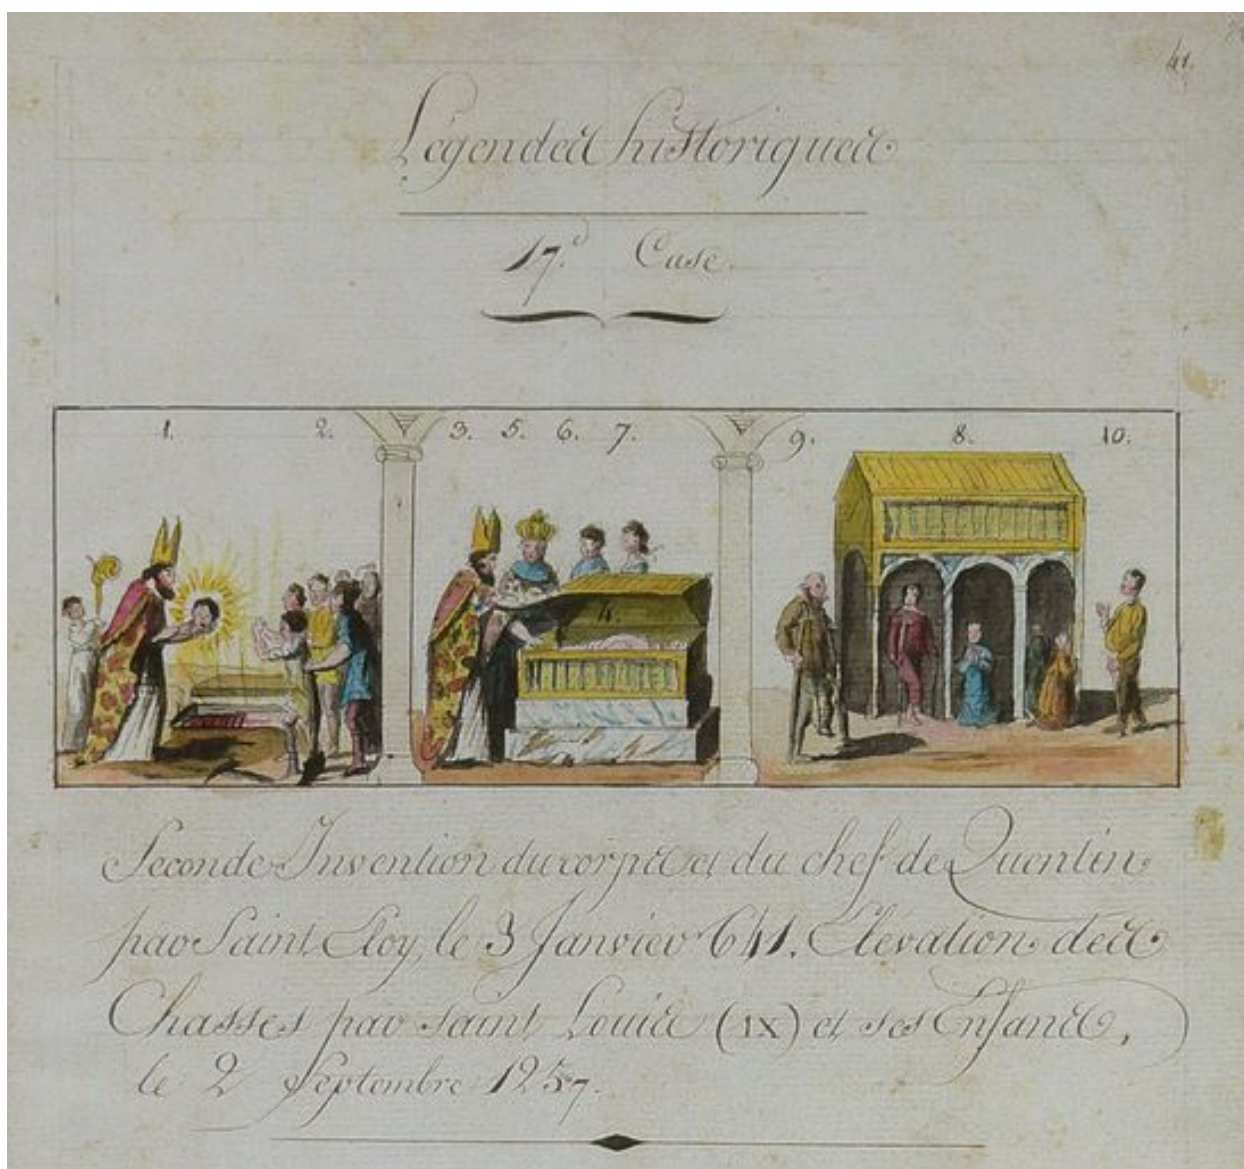 41.
Légendes historiques.
17e Case.
1. 2. 3. 5. 6. 7. 9. 8. 10.
4.
Seconde Invention du corps et du chef de Quentin
par Saint Eloy, le 3 Janvier 641. Elévation des
Chasses par saint Louis (IX) et ses Enfans,
le 2 Septembre 1257.